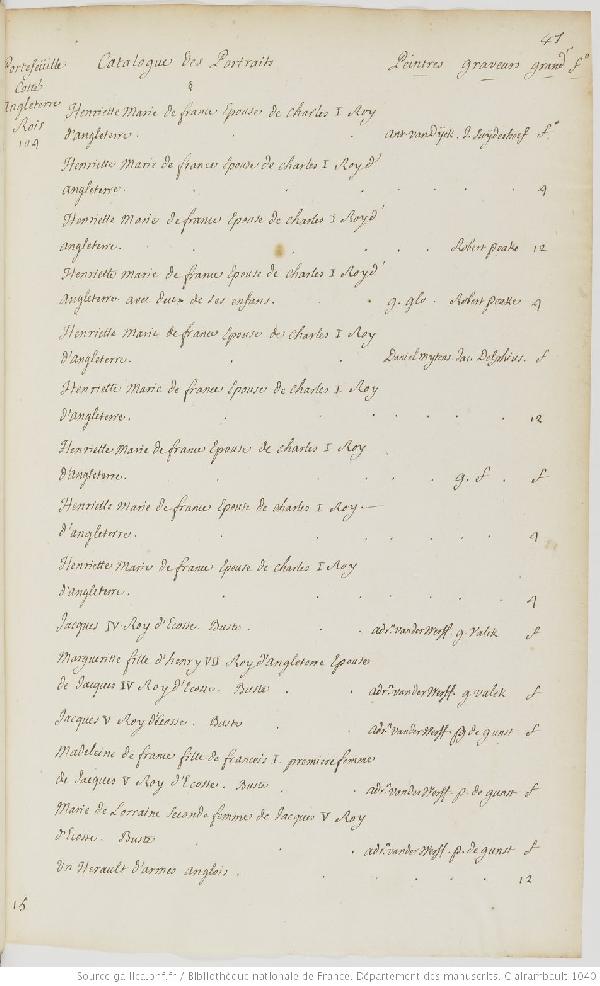 47
Portefeuille Catalogue Des Portraits Peintres graveurs grandr fo
Cotté
Angleterre
Rois
104
Henriette Marie de france Epouse de charles I Roy
d'angleterre. Ant. vanDÿck. J. Suÿderhoef fo
Henriette Marie de france Epouse de charles I Roy d'
angleterre. 4
Henriette Marie de france Epouse de charles I Roy d'
angleterre. Robert peake 12
Henriette marie de france Epouse de charles I Roy d'
Angleterre avec deux de ses enfans. g. glo. Robert peake 4
Henriette Marie de france Epouse de charles I Roy
d'angleterre. Daniel mytens Jac. Delphius. f
Henriette Marie de france Epouse de charles I Roy
d'angleterre. 12
Henriette Marie de france Epouse de charles I Roy
d'angleterre. g. f. f
Henriette Marie de france Epouse de charles I Roy
d'angleterre. 4
Henriette Marie de france Epouse de charles I Roy
d'angleterre. 4
Jacques IV Roy d'Ecosse. Buste. adrn. vander Werff. g. Valck f
Marguerite fille d'henry VII Roy d'Angleterre Epouse
de Jacques IV Roy d'Ecosse. Buste. adrn. vander Werff. g. valck f
Jacques V Roy d'écosse. Buste adrn. vander Werff. p. de gunst f
Madeleine de france fille de francois I premiere femme
de Jacques V Roy d'Ecosse. Buste. adrn. vander Werff. p. de gunst f
Marie de Lorraine seconde femme de Jacques V Roy
d'Ecosse. Buste adrn. vander Werff. p. de gunst f
Un Herault d'armes anglois. 12
15
Source gallica.bnf.fr / Bibliothèque nationale de France. Département des manuscrits. Clairambault 1040